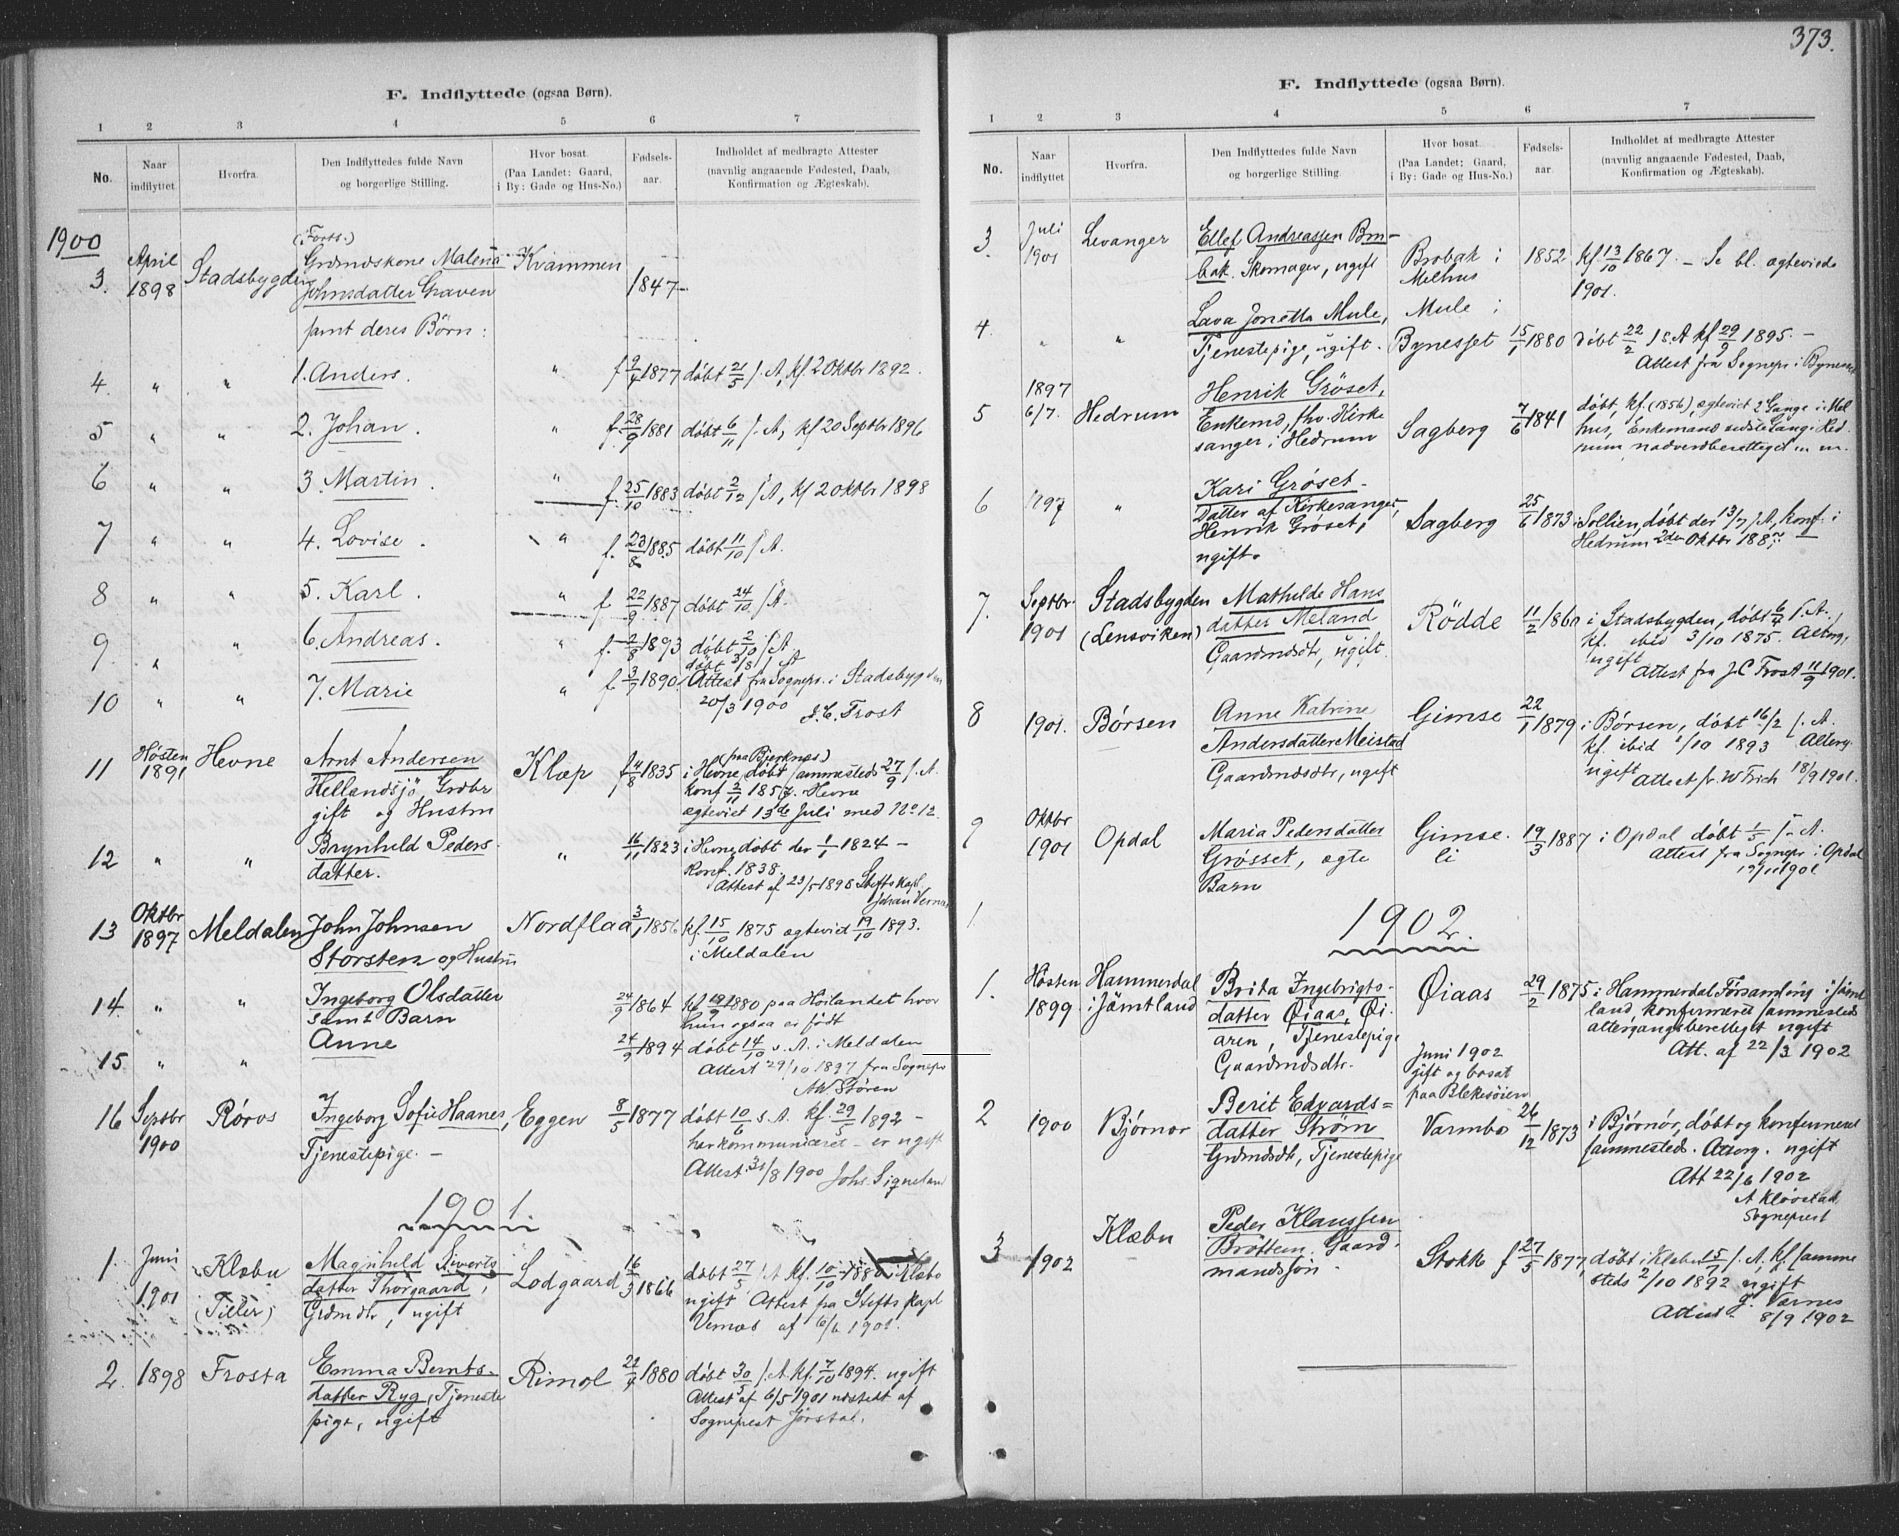 373.
F. Indflyttede (ogsaa Børn).
1 2 3 4 5 6 7
No. Naar indflyttet. Hvorfra. Den Indflyttedes fulde Navn og borgerlige Stilling. Hvor bosat. (Paa Landet: Gaard, i By: Gade og Hus-No.) Fødsels-aar. Indholdet af medbragte Attester (navnlig angaaende Fødested, Daab, Konfirmation og Ægteskab).
1900 (Forts.)
3. April 1898 Stadsbygden
Grdmdskone Malena Kvammen
Johnsdatter Graven 1847
samt deres Børn:
4 " " 1. Anders. " f 9/4 1877 døbt 21/5 s. A, kf 2 Oktbr 1892.
5 " " 2. Johan. " f. 28/9 1881 døbt 6/11 s. A, kf 20 Septbr 1896
6 " " 3. Martin. " f. 25/10 1883 døbt 2/12 s. A, kf 2 Oktbr 1898
7 " " 4. Lovise. " f. 23/8 1885 døbt 11/10 s. A.
8 " " 5. Karl. " f 22/9 1887 døbt 24/10 s. A.
9. " " 6. Andreas. " f. 2/8 1893 døbt 2/10 s. A
10 " " 7. Marie " f 3/7 1890 døbt 3/8 s. A
Attest fra Sognepr. i Stadsbygden
20/3 1900 J. C. Frost
11 Høsten 1891 Hevne Arnt Andersen Klæp f 4/8 1835 (paa Bjerknes)
Hellandsjö, Grdbr i Hevne, døbt sammesteds 27/9 s. A.
gift og Hustru konf 2/11 1857. Hevne
ægteviet 13de Juli med No 12.
12 " " Brynhild Peders- " 16/11 1823 i Hevne, døbt der 1/1 1824 –
datter. Konf. 1838.
Attest af 23/5 1898 Stiftskapl.
13 Oktbr 1897 Meldalen John Johnsen Nordflaa 3/1 1856 kf. 15/10 1875 ægtevid 19/10 1893.
Storsten og Hustru i Meldalen
14. " " Ingeborg Olsdatter 24/9 1864 kf 19/9 1880 paa Høilandet hvor
samt Barn hun ogsaa er født
15. " " Anne 24/9 1894 døbt 14/10 s. A. i Meldalen
Attest 29/10 1897 fra Sognepr
AW Støren
16 Septbr 1900 Røros Ingeborg Sofie Haanes, Eggen 8/5 1877 døbt 10/6 s. A. kf. 29/5 1892 –
Tjenestepige. – har kommuniceret – er ugift
Attest 31/8 1900 Johs. Signelan
1901
1. Juni 1901 Klæbu (Tiller) Magnhild Siverts- Lodgaard 16/3 1866 døbt 27/5 s. A. kf. 10/10 1880 i Klæbu
datter Thorgaard, ugift Attest fra Stiftskapl
Grdmdtr, ugift af 6/6 1901.
2. 1898 Frosta Emma Bernts- Rimol 1880 døbt 30/5 s. A. kf. 7/10 1894. ugift
datter Ryg, Tjeneste- Attest af 6/5 1901 udstedt af
pige, ugift Sognepræst Jørstad.
F. Indflyttede (ogsaa Børn).
1 2 3 4 5 6 7
No. Naar indflyttet. Hvorfra. Den Indflyttedes fulde Navn og borgerlige Stilling. Hvor bosat. (Paa Landet: Gaard, i By: Gade og Hus-No.) Fødsels-aar. Indholdet af medbragte Attester (navnlig angaaende Fødested, Daab, Konfirmation og Ægteskab).
3. Juli 1901 Levanger Ellef Andreassen Bro- Brobak i 1852 kf 13/10 1867. – Se bl. ægteviede
bak. Skomager, ugift Melhus 1901.
4. " " Lava Jonetta Mule, Mule i
Tjenestepige, ugift. Bynesset 15/1 1880 døbt 22/2 s. A kf 29/9 1895. –
Attest fra Sognepr. i Bynesset
5 1897 6/7. Hedrum Henrik Gröset, Sagberg 7/6 1841 døbt, kf. (1856), ægteviet 2 Gange i Mel-
Enkemd, fhv. Kirke- hus, Enkemand sidste Gang i Hed-
sanger i Hedrum rum, nadverdberettiget m. m.
6 1897 " Kari Grøset. Sagberg 25/6 1873 i Sollien, døbt der 13/7 s. A., konf. i
Datter af Kirkesanger, Hedrum 2den Oktbr 1887.
Henrik Grøset,
ugift.
7. Septbr. 1901 Stadsbygden (Lensviken) Mathilde Hans- Rödde 11/2 1860 i Stadsbygden, døbt 6/4 s. A.
datter Meland kf. ibid 3/10 1875. Altrg,
Gaardmdsdtr, ugift. ugift
Attest fra J. C Frost 11/9 1901.
8 1901. Børsen Anne Katrine Gimse 22/1 1879 i Børsen, døbt 16/2 s. A.
Andersdatter Meistad kf. ibid 1/10 1893 Alterg.
Gaardmdsdtr, ugift ugift Attest fr. W Frich 18/9 1901.
9 Oktbr 1901 Opdal Maria Pedersdatter Gimse- 19/3 1887 i Opdal døbt 1/5 s. A.
Grøsset, ægte li Attest fra Sognepr i Opdal
Barn 1901
1902.
1. Høsten 1899 Hammerdal i Jämtland Brita Ingebrigts- Øiaas 29/2 1875 i Hammerdal Församling i Jämt-
datter Øiaas, Øi- land, konfirmeret sammesteds
aren, Tjenestepige altergangsberettiget ugift
Gaardmdsdtr. Juni 1902 Att. af 22/3 1902
gift og bosat
paa Blekesöien
2 1900 Bjørnør Berit Edvards- Varmbo 26/12 1873 i Bjørnør, døbt og konfirmeret
datter Strøm sammesteds. Alterg. ugift
Grdmdsdt, Tjenestepige Att 22/6 1902
A Kløvstad
Sognepræst
3 1902 Klæbu Peder Klaussen Stokk f 27/5 1877, døbt i Klæbu 15/7 s. A. kf. samme-
Brøttem. Gaard- steds 2/10 1892 ugift
mandssøn. Attest J.Værnes
8/9 1902